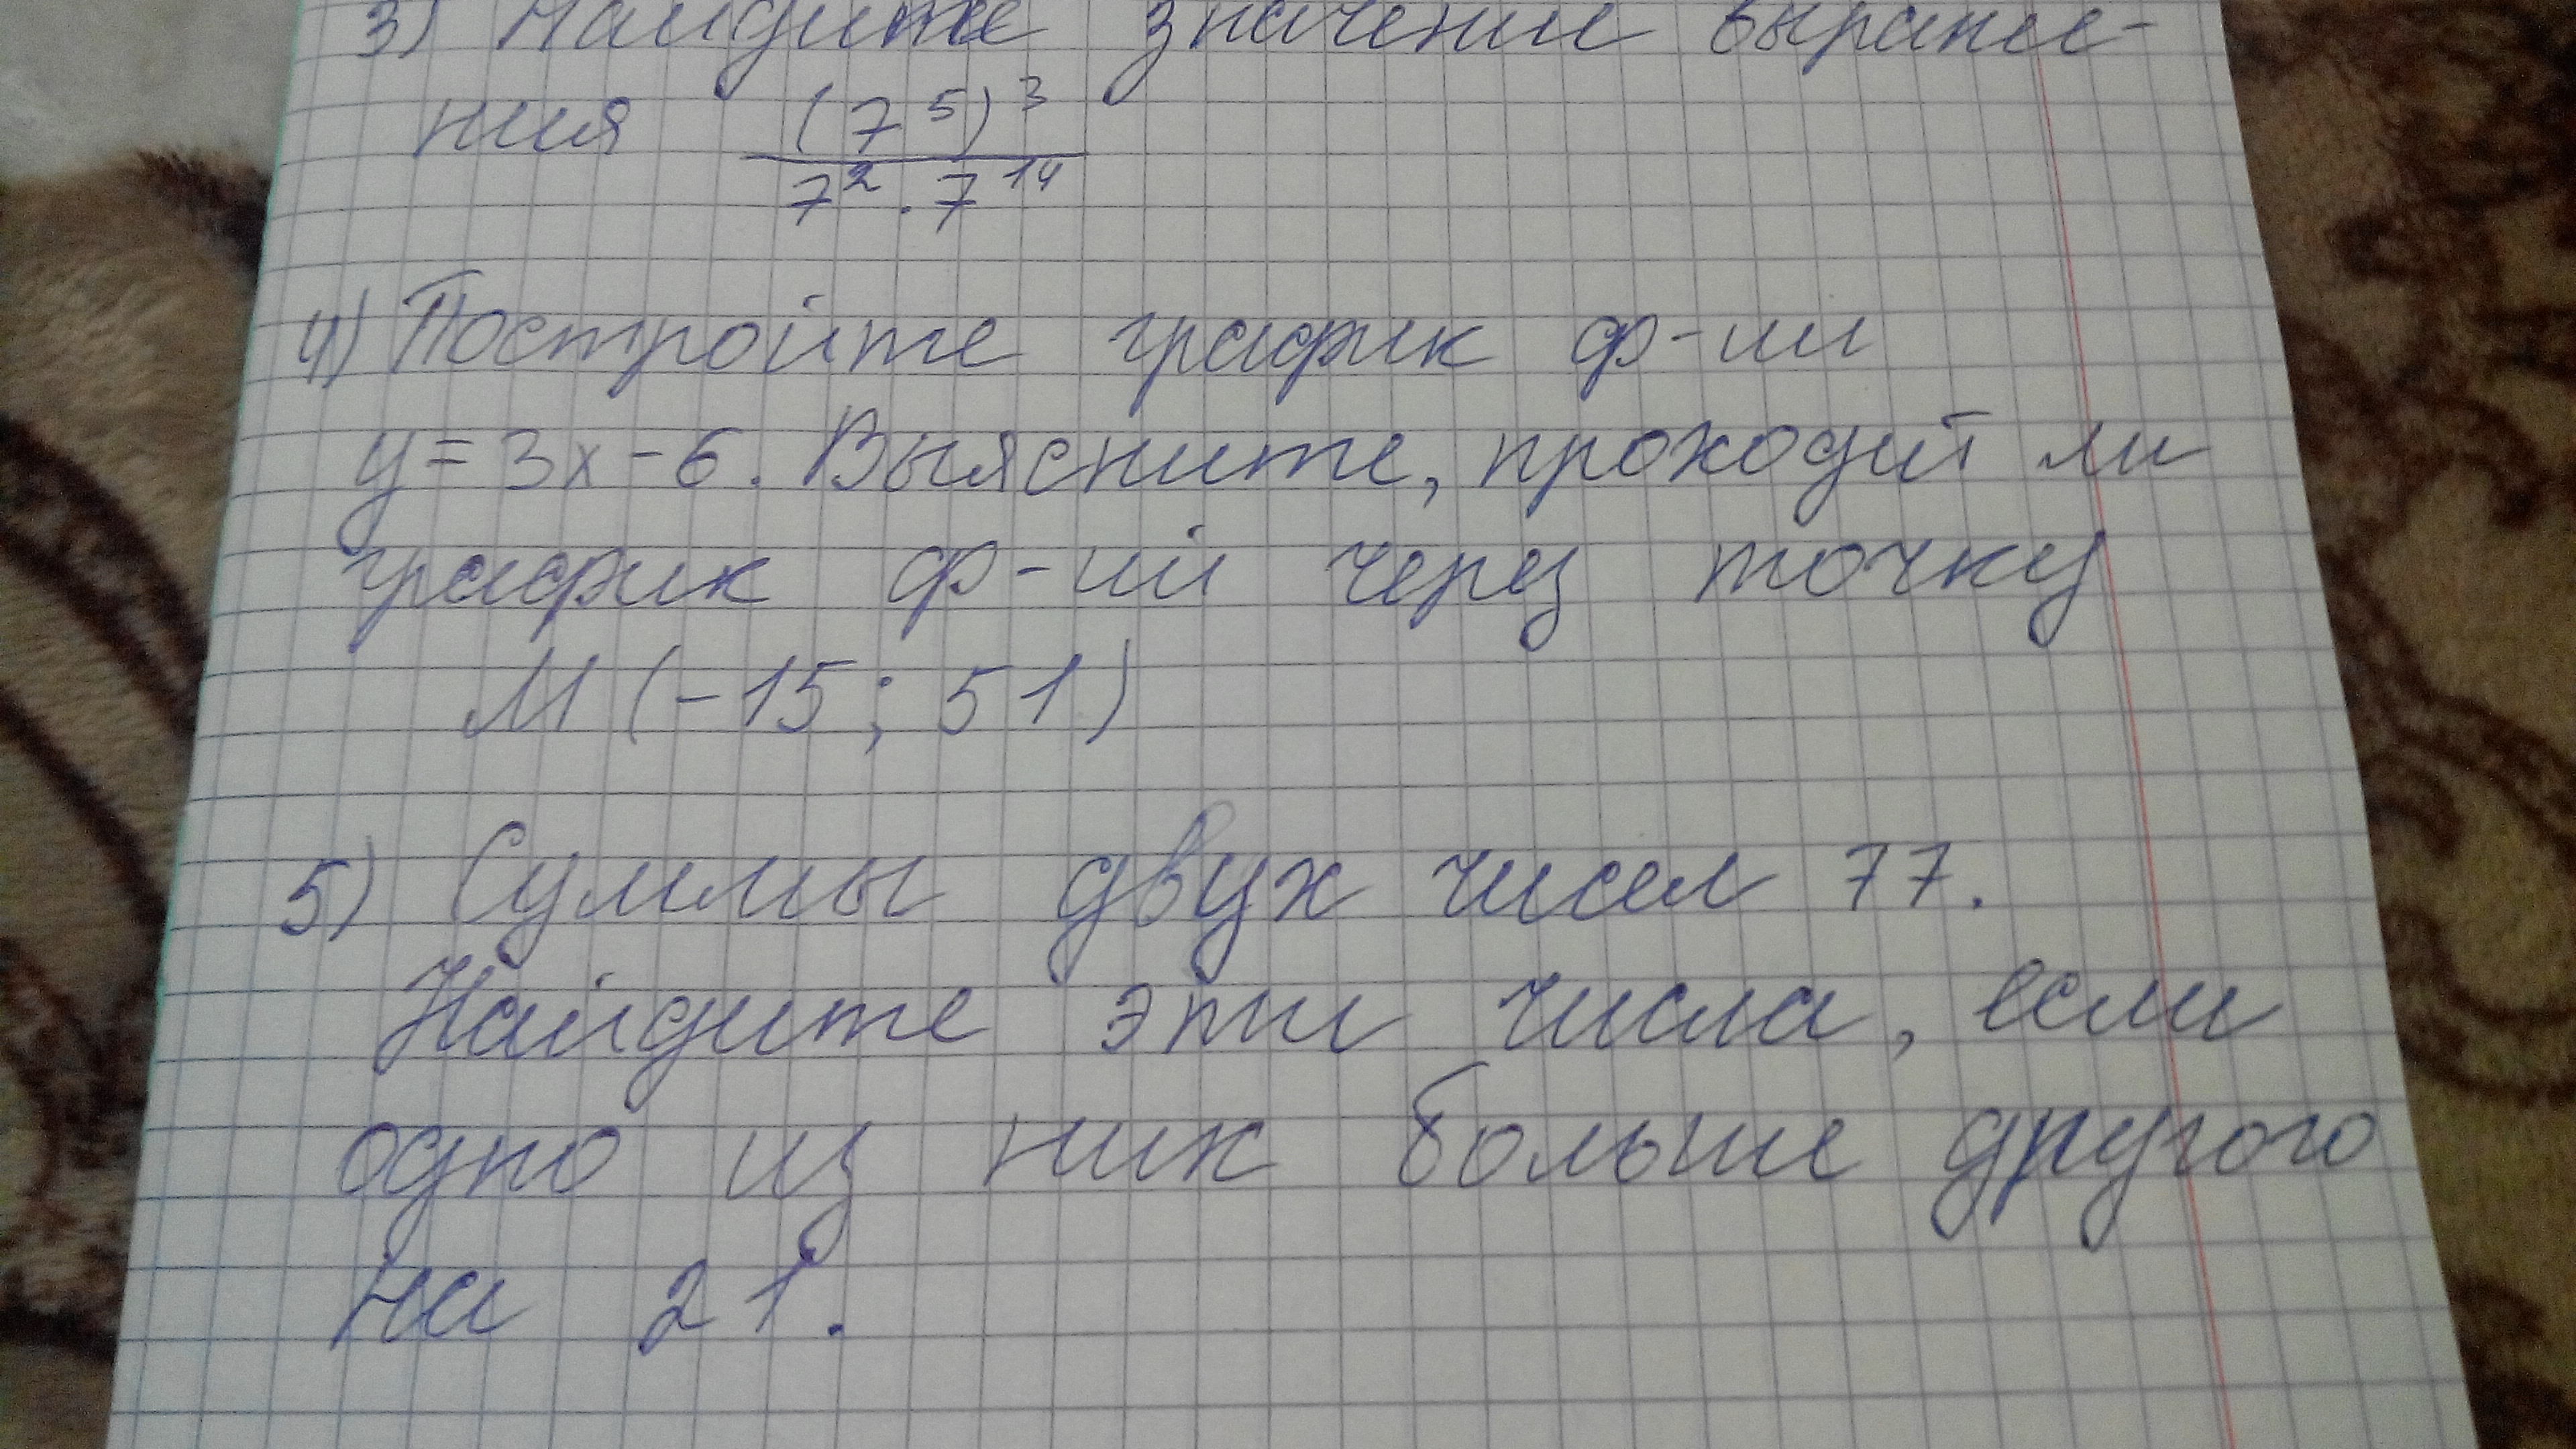 3) Найдите значение выраже-
ния (7⁵)³
7² · 7¹⁴
4) Постройте график ф-ии
y = 3x - 6. Выясните, проходит ли
график ф-ий через точку
М (-15; 51)
5) Суммы двух чисел 77.
Найдите эти числа, если
одно из них больше другого
на 21.